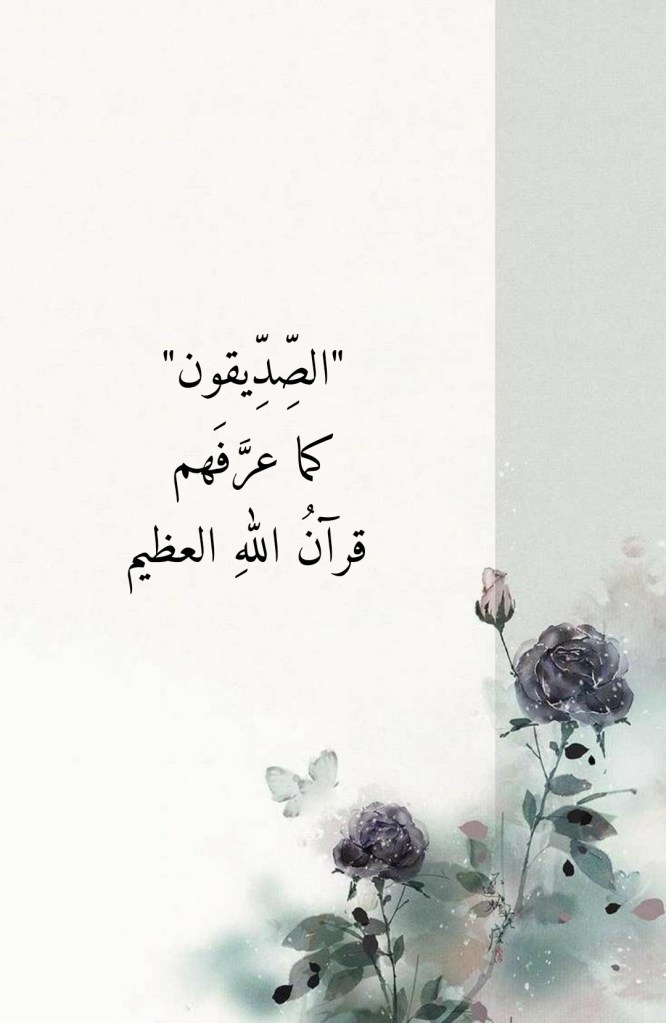 "الصِّدِّيقون"
كما عرَّفَهم
قرآنُ اللهِ العظيم